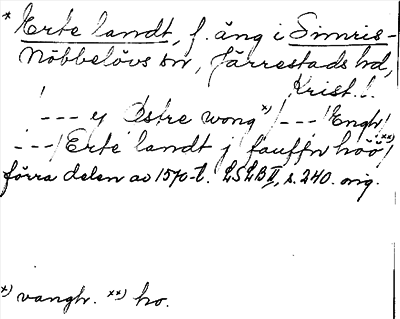 * Erte landt, f. äng i Simris-
Nöbbelövs sn, Järrestads hd,
Krist. l.
/--- y Østre wong *)/---/Engh/
---/Erte landt j fauffn höö **)/
förra delen av 1570-t. LSLB II, s. 240. orig.
*) vangh. **) ho.